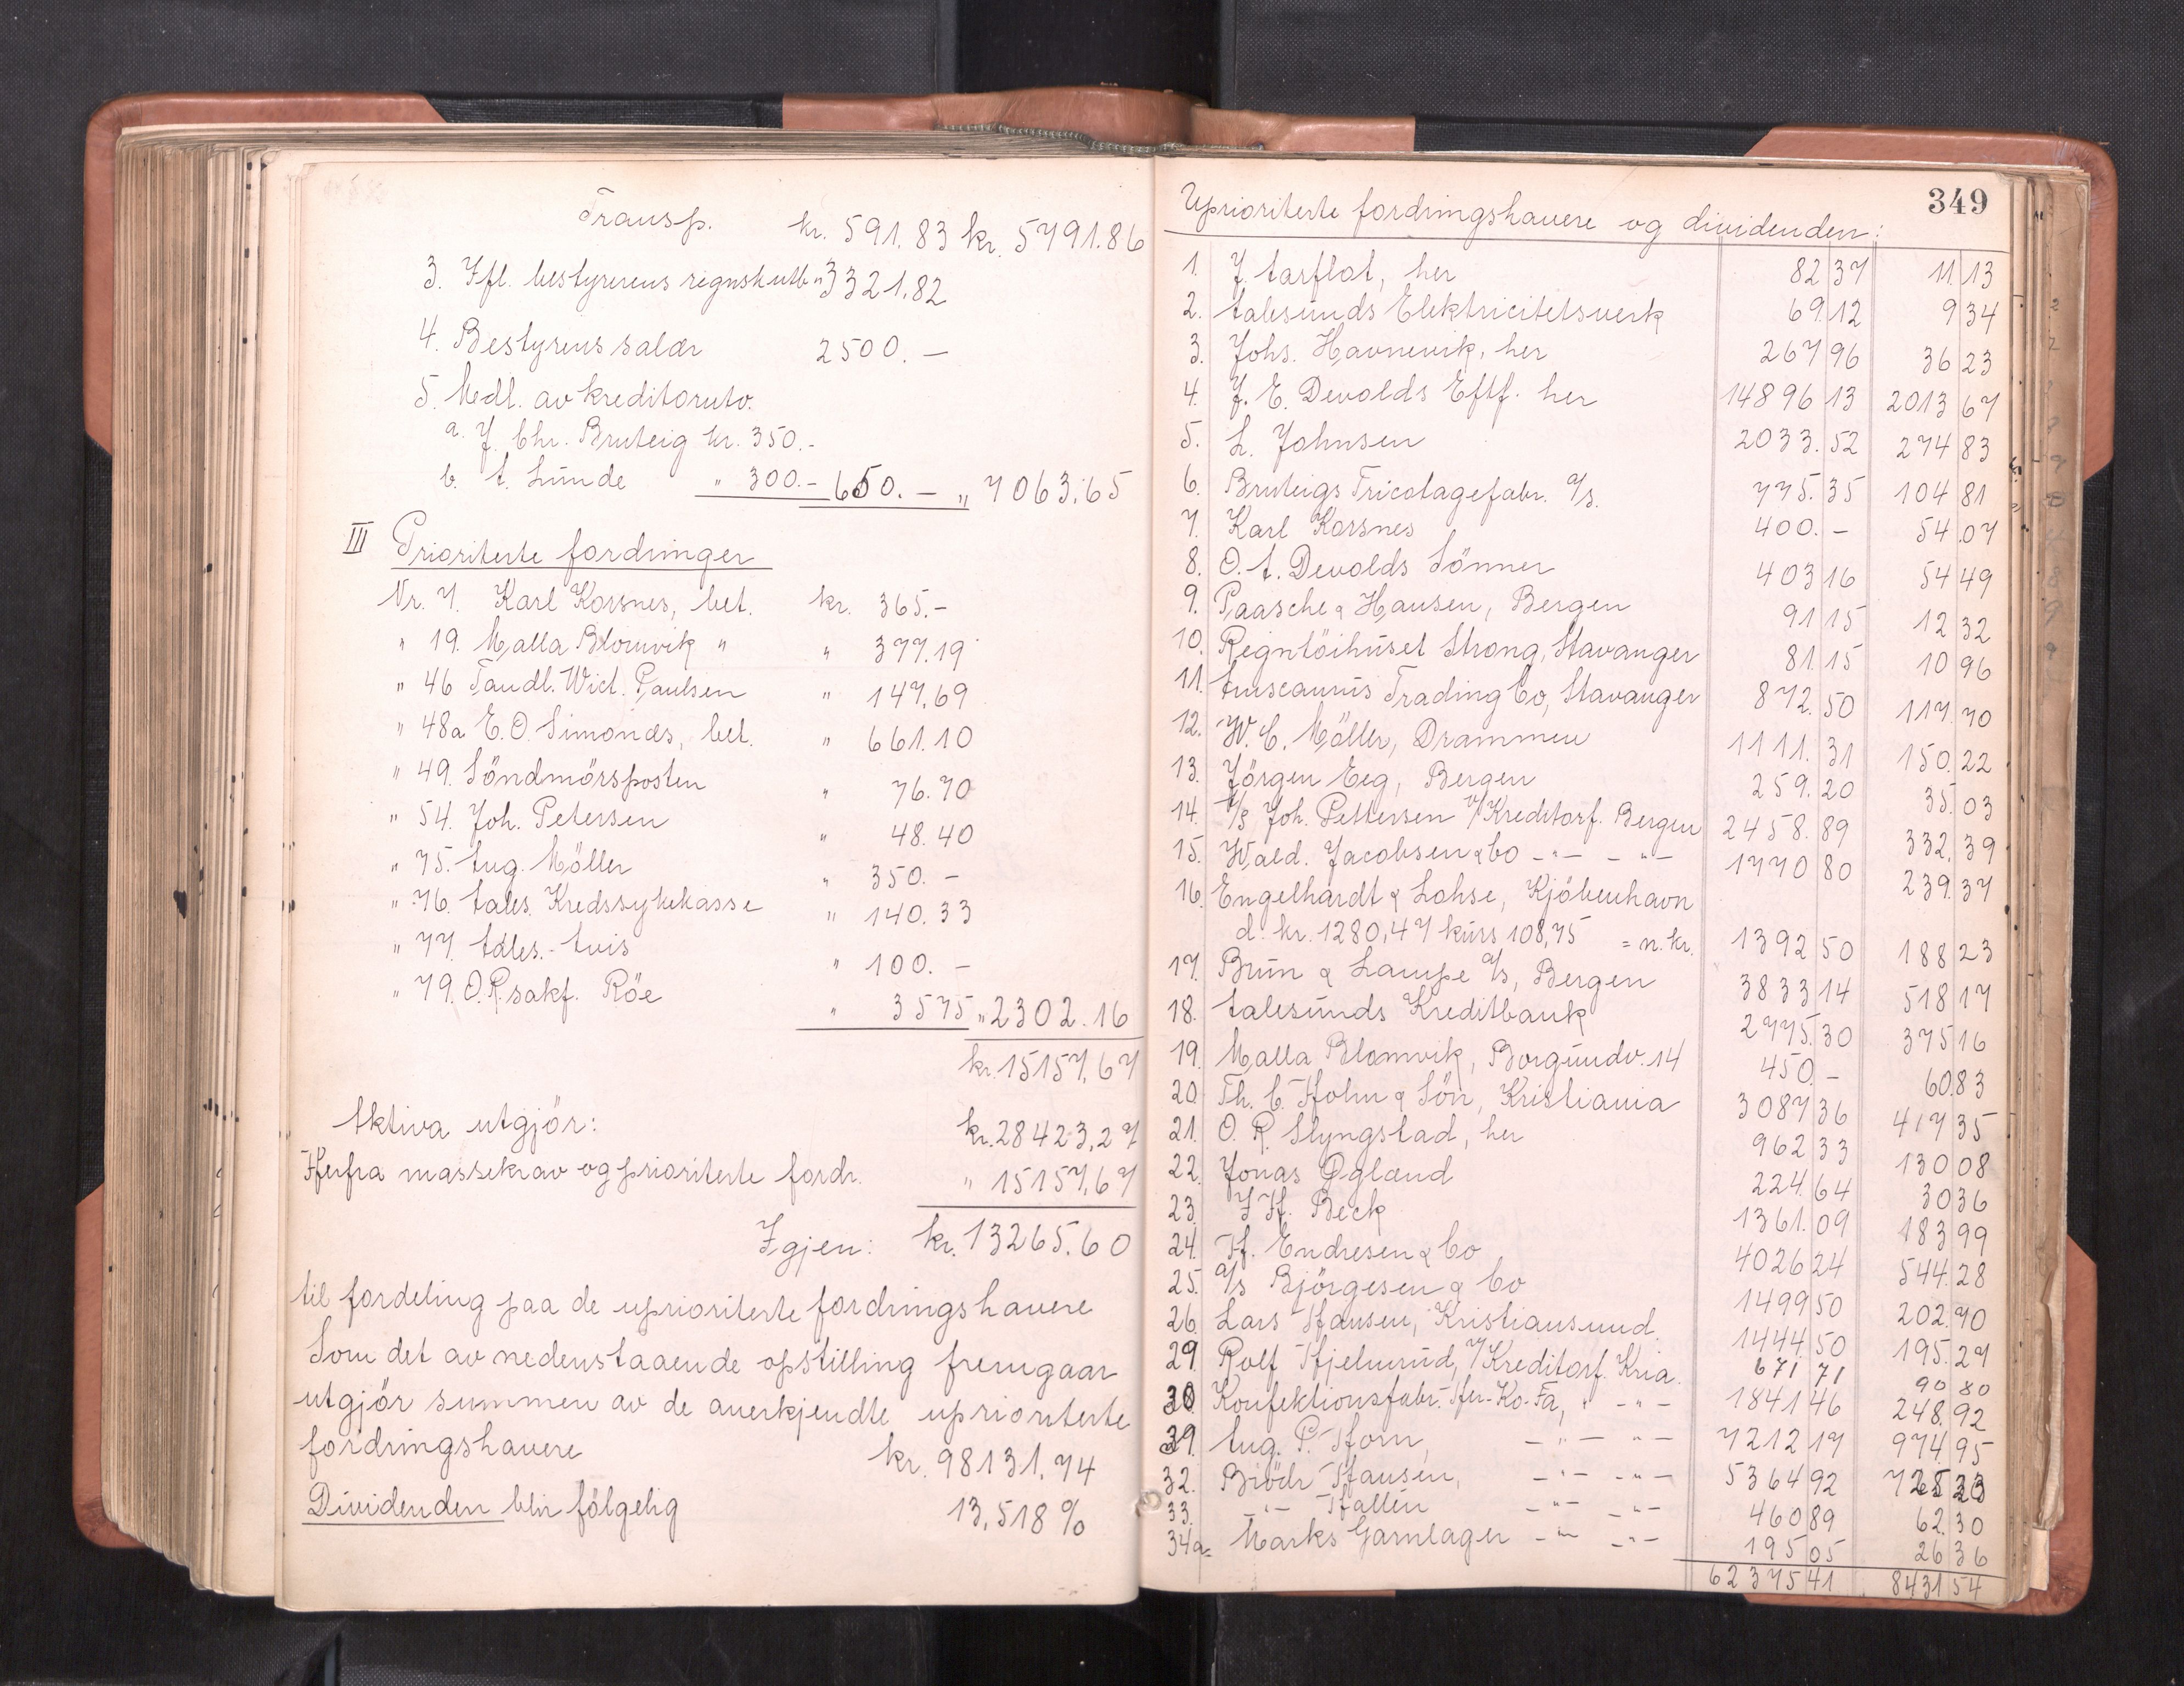 Transp. kr. 591.83 kr. 5791.86
3. Ifl. bestyrerens regnskutb " 3321.82
4. Bestyrens salær 2500.—
5. Medl. av kreditorutv.
a. J. Chr. Bruteig kr. 350.-
b. A. Lunde " 300.- 650.— " 7063.65
III Prioriterte fordringer
Nr. 7. Karl Korsnes, bet. kr. 365.-
" 19. Malla Blomvik " " 377.19
" 46 Tandl. Wict. Paulsen " 147.69
" 48a E. O. Simonæs, bet. " 661.10
" 49. Söndmörsposten " 76.70
" 54. Joh. Petersen " 48.40
" 75. Aug. Möller " 350.—
" 76. Aales. Kredssykekasse " 140.33
" 77. Aales.- Avis " 100.—
" 79. O.R.sakf. Röe " 35 75 " 2302.16
kr. 15157.67
Aktiva utgjör: kr. 28423,27
Herfra massekrav og prioriterte fordr. " 15157,67
Igjen: kr. 13265.60
til fordeling paa de uprioriterte fordringshavere
Som det av nedenstaaende opstilling fremgaar
utgjör summen av de anerkjendte uprioriterte
fordringshavere kr. 98131.74
Dividenden blir fölgelig 13,518 %
349
Uprioriterte fordringshavere og dividenden:
1. J. Aarflot, her 82 37 11. 13
2. Aalesunds Elektricitetsverk 69. 12 9 34
3. Johs. Havnevik, her 267 96 36 23
4. J. E. Devolds Eftf. her 14896 13 2013 67
5. L. Johnsen 2033. 52 274 83
6. Bruteigs Tricotagefabr. A/s. 775. 35 104 81
7. Karl Korsnes 400. — 54 .07
8. O. A. Devolds Sönner 403 16 54 49
9. Paasche & Hansen, Bergen 91 15 12 32
10. Regntöihuset Strong, Stavanger 81. 15 10 96
11. Amscannis Trading Co, Stavanger 872. 50 117. 70
12. W. C. Möller, Drammen 1111. 31 150. 22
13. Jörgen Eeg, Bergen 259. 20 35. 03
14. A/S Joh. Pettersen v/ Kreditorf. Bergen 2458. 89 332. 39
15. Wald. Jacobsen & Co - " - - " - 1770 80 239. 37
16. Engelhardt & Lohse, Kjöbenhavn
d. kr. 1280,47 kurs 108,75 = n. kr. 1392 50 188 23
17. Brun & Lampe A/s, Bergen 3833 14 518 17
18. Aalesunds Kreditbank 2775. 30 375 16
19. Malla Blomvik, Borgundv. 14 450. — 60. 83
20. Th. C. Holm & Sön, Kristiania 3087 36 417 35
21. O. R. Slyngstad, her 962 33 130 08
22. Jonas Øglænd 224. 64 30 36
23. I H. Beck 1361. 09 183 99
24. H. Endresen & Co 4026 24 544. 28
25. A/s Björgesen & Co 1499 50 202. 70
26. Lars Hansen, Kristiansund. 1444. 50 195. 27
29. Rolf Hjelmrud, v/Kreditorf. Kria. 671 71 90 80
30 Konfektionsfabr. Her-Ko-Fa, " - " - 1841 46 248. 92
39. Aug. P. Horn, - " - - " - 7212 17 974. 95
32. Brödr Hansen, - " - - " - 5364 92 725 23
33. - " - Hallén - " - - " - 460 89 62. 30
34a. Marks Garnlager - " - - " - 195 05 26 36
62375 41 8431 54